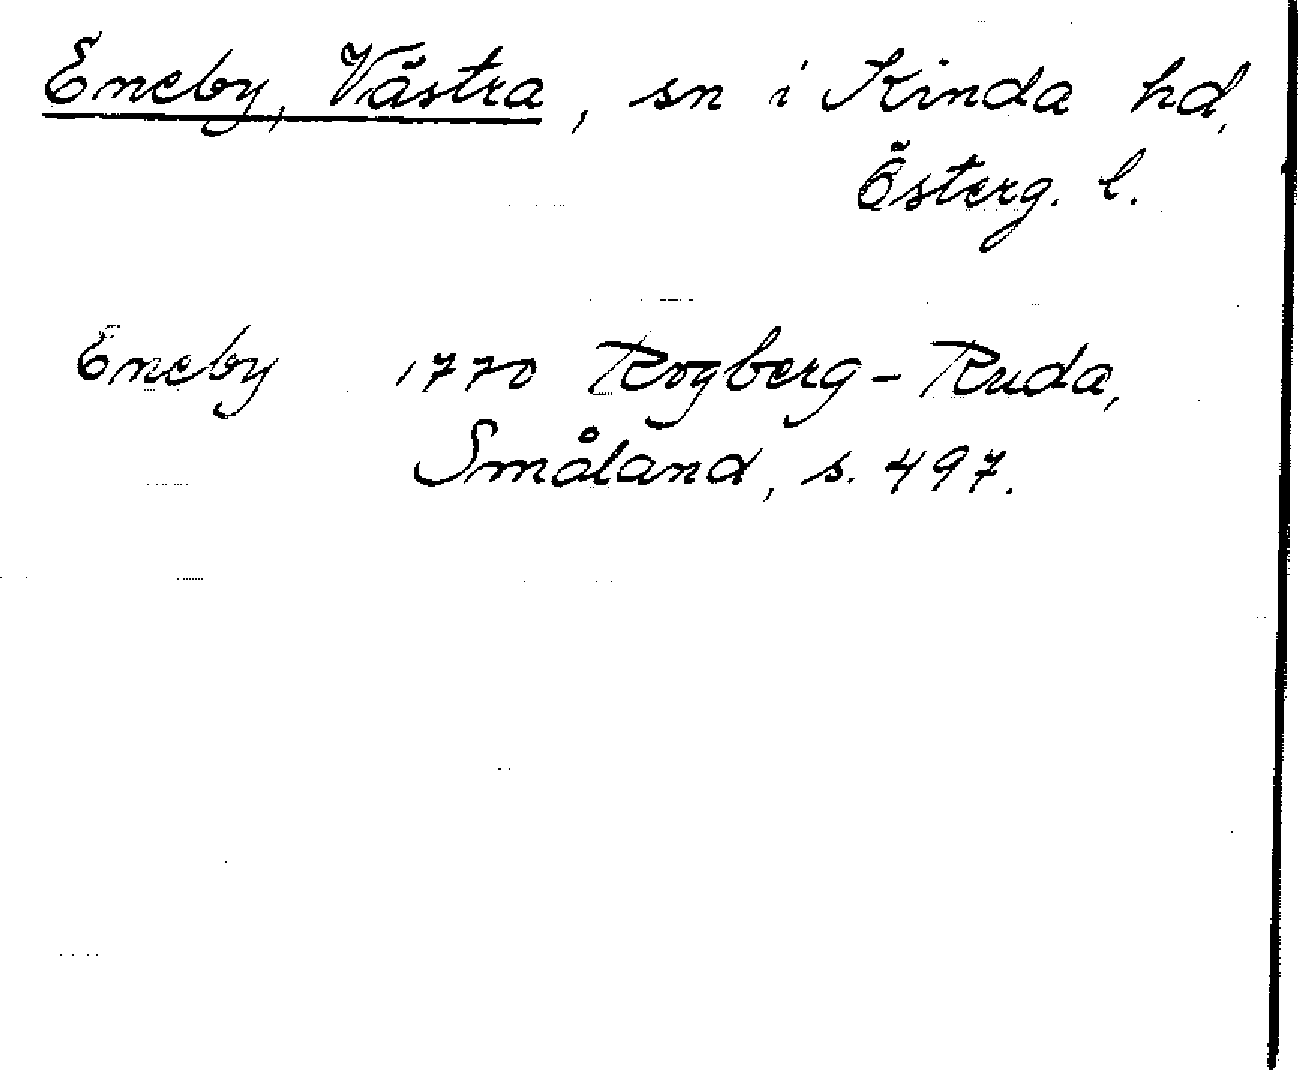 Eneby, Västra, sn i Kinda hd,
Österg. l.
Eneby 1770 Rogberg-Ruda,
Småland, s. 497.